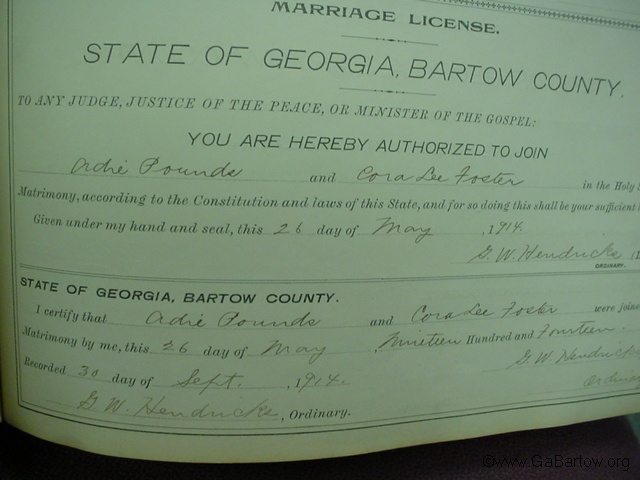 MARRIAGE LICENSE.
STATE OF GEORGIA, BARTOW COUNTY.
TO ANY JUDGE, JUSTICE OF THE PEACE, OR MINISTER OF THE GOSPEL:
YOU ARE HEREBY AUTHORIZED TO JOIN
Adie Pounds and Cora Lee Foster in the Holy S
Matrimony, according to the Constitution and laws of this State, and for so doing this shall be your sufficient
Given under my hand and seal, this 26 day of May, 1914.
G. W. Hendricks (L
ORDINARY.
STATE OF GEORGIA, BARTOW COUNTY.
I certify that Adie Pounds and Cora Lee Foster were joine
Matrimony by me, this 26 day of May, Nineteen Hundred and Fourteen.
G. W. Hendricks
Recorded 30 day of Sept., 1914.
Ordinary
G. W. Hendricks, Ordinary.
©www.GaBartow.org